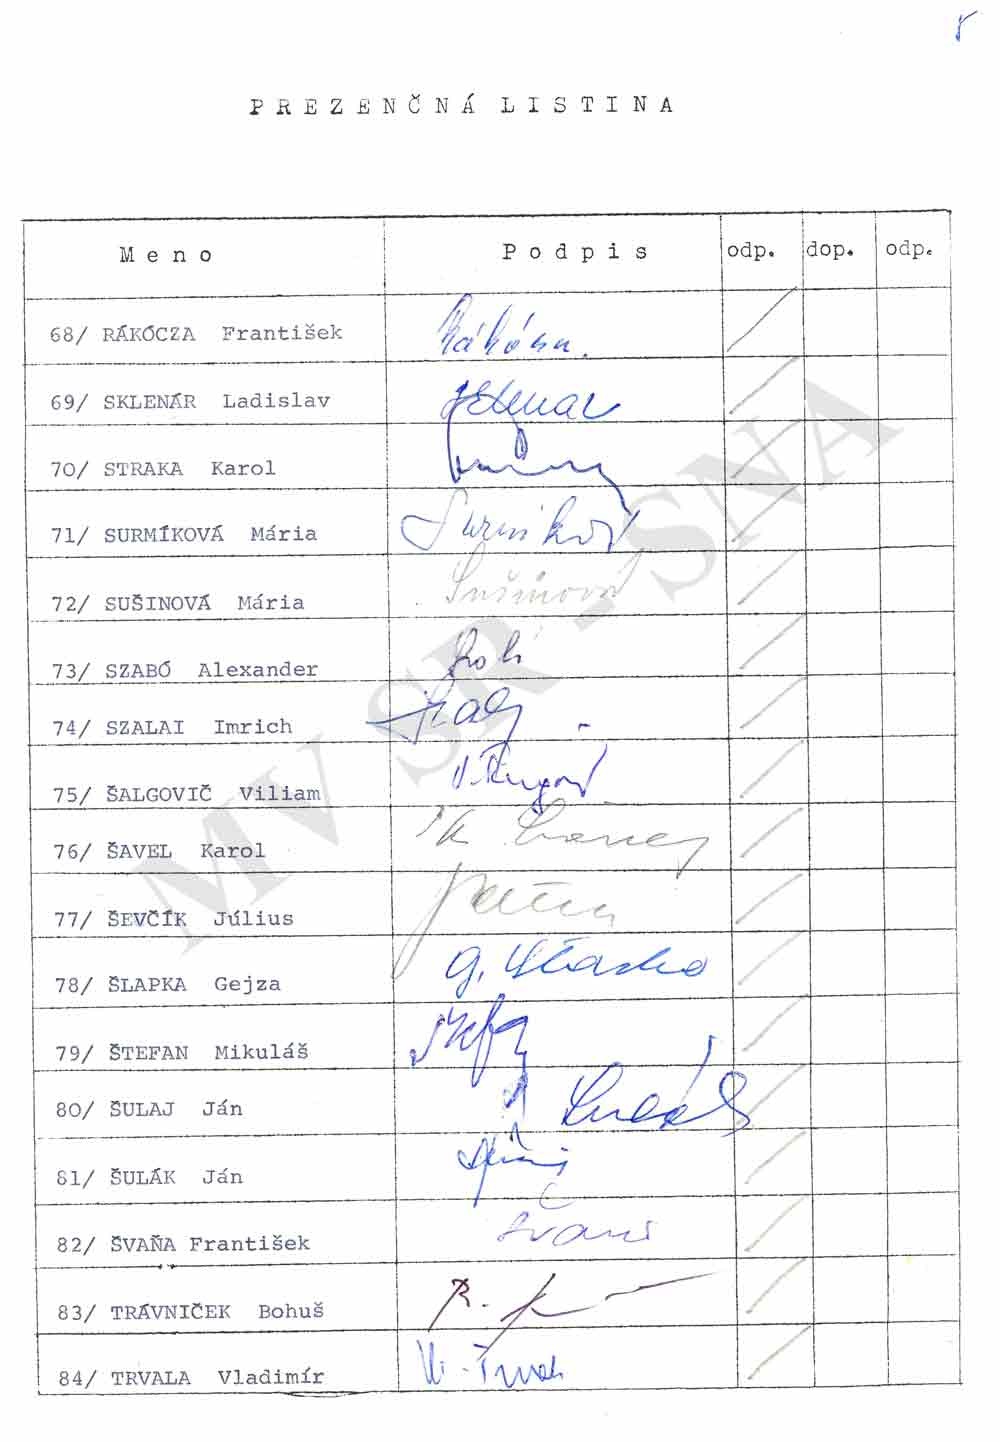 PREZENČNÁ LISTINA
Meno Podpis odp. dop. odp.
68/ RÁKÓCZA František Rákócza.
69/ SKLENÁR Ladislav Sklenar
70/ STRAKA Karol
71/ SURMÍKOVÁ Mária Surmíková
72/ SUŠINOVÁ Mária Sušinová
73/ SZABÓ Alexander
74/ SZALAI Imrich
75/ ŠALGOVIČ Viliam
76/ ŠAVEL Karol
77/ ŠEVČÍK Július
78/ ŠLAPKA Gejza
79/ ŠTEFAN Mikuláš
80/ ŠULAJ Ján
81/ ŠULÁK Ján
82/ ŠVAŇA František
83/ TRÁVNIČEK Bohuš
84/ TRVALA Vladimír
MV SR - SNA